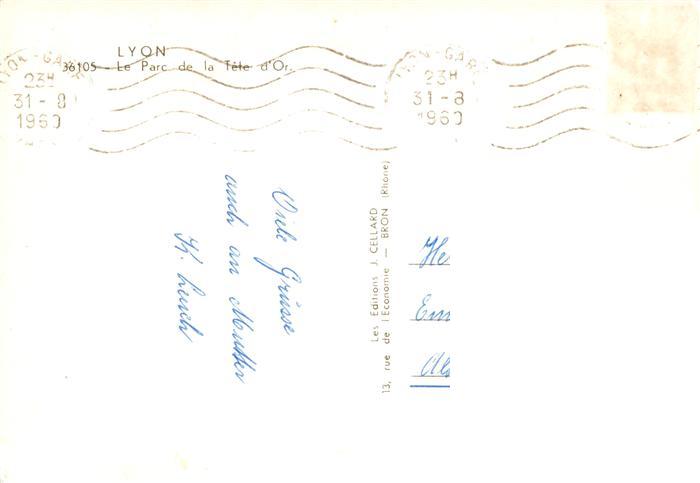 LYON
36105 - Le Parc de la Tête d'Or.
LYON-GARE
23H
31-8
1960
LYON-GARE
23H
31-8
1960
Viele Grüsse
auch an Mutter
Les Editions J. CELLARD
13, rue de l'Economie — BRON (Rhône)
He
Em